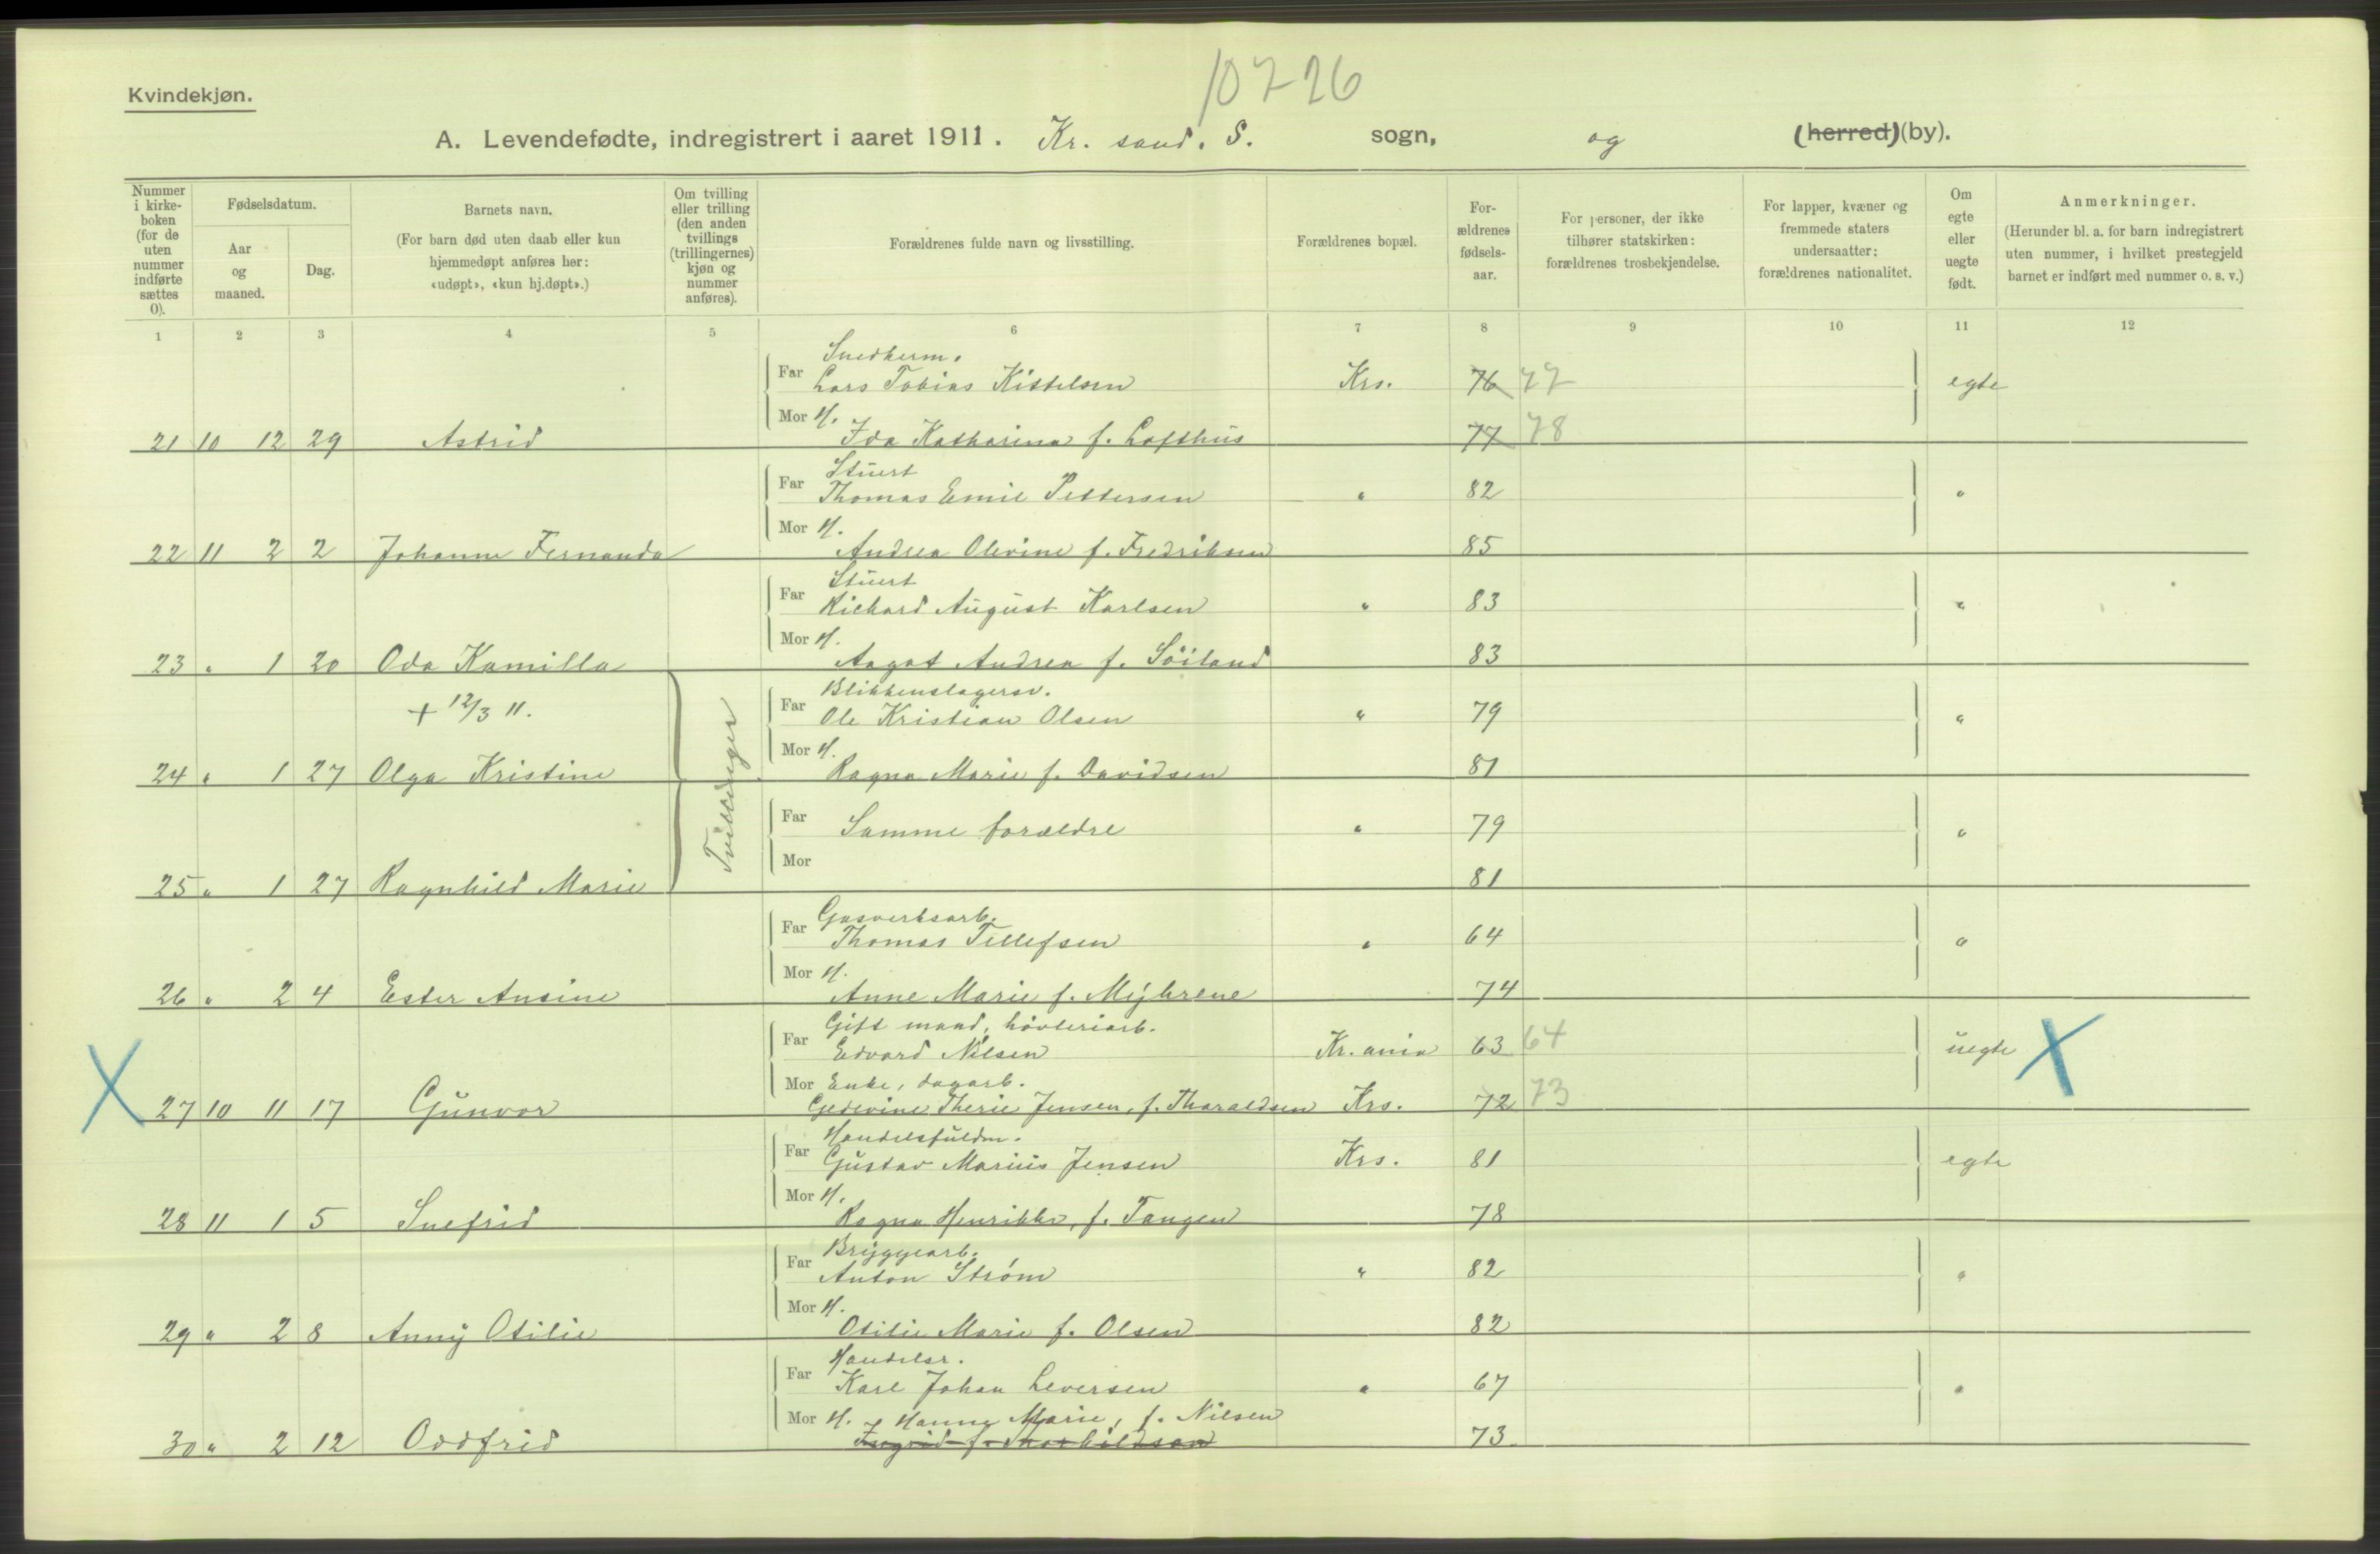 Kvindekjøn.
10726
A. Levendefødte, indregistrert i aaret 1911. Kr. sand. S. sogn, og (herred)(by).
Nummer i kirke-boken (for de uten nummer indførte sættes 0).
Fødselsdatum.
Aar og maaned.
Dag.
Barnets navn.
(For barn død uten daab eller kun hjemmedøpt anføres her: «udøpt», «kun hj.døpt».)
Om tvilling eller trilling (den anden tvillings (trillingernes) kjøn og nummer anføres).
Forældrenes fulde navn og livsstilling.
Forældrenes bopæl.
For-ældrenes fødsels-aar.
For personer, der ikke tilhører statskirken: forældrenes trosbekjendelse.
For lapper, kvæner og fremmede staters undersaatter: forældrenes nationalitet.
Om egte eller uegte født.
Anmerkninger.
(Herunder bl. a. for barn indregistrert uten nummer, i hvilket prestegjeld barnet er indført med nummer o. s. v.)
1 2 3 4 5 6 7 8 9 10 11 12
Snedkerm.
Far Lars Tobias Kittelsen Krs. 76 77 egte
Mor H.
21 10 12 29 Astrid Ida Katharina f. Lofthus 77 78
Stuert
Far Thomas Emil Pettersen " 82 "
Mor H.
22 11 2 2 Johanne Fernanda Andrea Olevine f. Fredriksen 85
Stuert
Far Richard August Karlsen " 83 "
Mor H.
23 " 1 20 Oda Kamilla Aagot Andrea f. Söiland 83
Blikkenslagersv.
+ 12/3 11. Far Ole Kristian Olsen " 79 "
Mor H.
24 " 1 27 Olga Kristine Ragna Marie f. Davidsen 81
Tvillinger
Far Samme forældre " 79 "
Mor
25 " 1 27 Ragnhild Marie 81
Gasverksarb.
Far Thomas Tellefsen " 64 "
Mor H.
26 " 2 4 Ester Ansine Anne Marie f. Myhrene 74
Gift mand, hövleriarb.
Far Edvard Nilsen Kr. ania 63 64 uegte X
Mor Enke, dagarb.
X 27 10 11 17 Gunvor Gedevine Therie Jensen, f. Tharaldsen Krs. 72 73
Handelsfuldm.
Far Gustav Marius Jensen Krs. 81 egte
Mor H.
28 11 1 5 Snefrid Ragna Henrikke, f. Tangen 78
Bryggearb.
Far Anton Strøm " 82 "
Mor H.
29 " 2 8 Anny Otilie Otilie Marie f. Olsen 82
Handelsr.
Far Karl Johan Leversen " 67 "
Mor H. Hanna Marie, f. Nilsen
30 " 2 12 Oddfrid Ingrid f. Thorkildsen 73